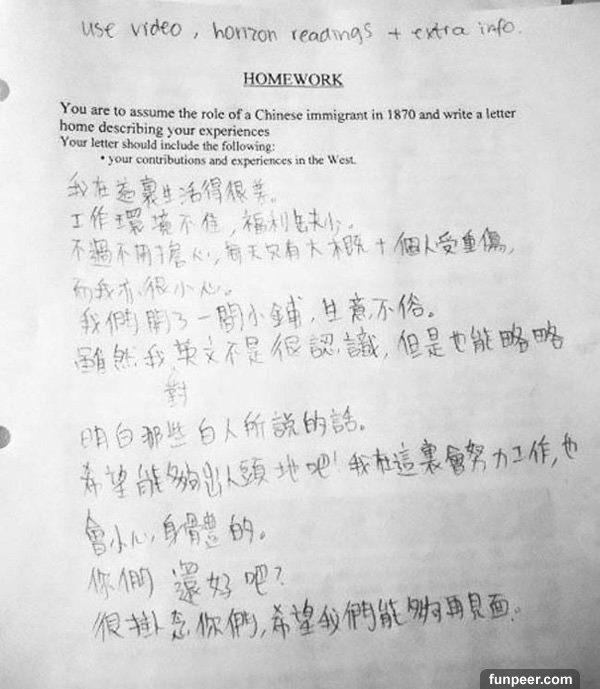 use video, horizon readings + extra info.
HOMEWORK
You are to assume the role of a Chinese immigrant in 1870 and write a letter
home describing your experiences
Your letter should include the following:
• your contributions and experiences in the West.
我在這裏生活得很差。
工作環境不佳，福利缺少。
不過不用擔心，每天只有大概十個人受重傷，
而我亦很小心。
我們開了一間小鋪，生意不俗。
雖然我對英文不是很認識，但是也能略略
明白那些白人所說的話。
希望能夠出人頭地吧！我在這裏會努力工作，也
會小心身體的。
你們還好吧？
很掛念你們，希望我們能夠再見面。
funpeer.com